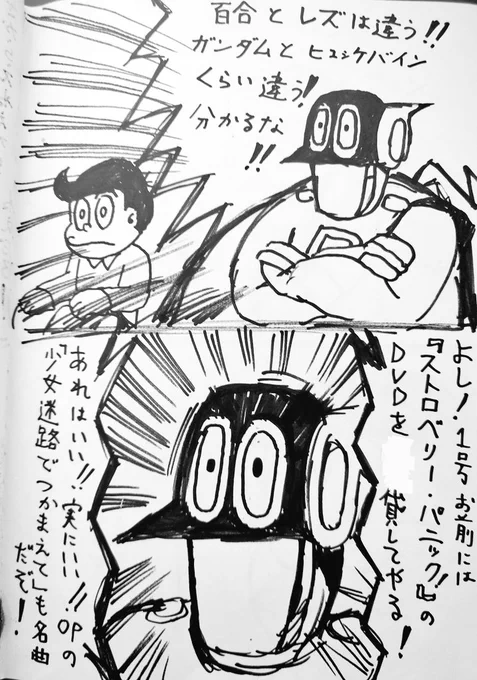 百合とレズは違う!!
ガンダムとヒュッケバイン
くらい違う!
分かるな
!!
よし!・1号お前には
『ストロベリー・パニック!』の
DVDを 貸してやる!
あれはいい!!実にいい!!OPの
「少女迷路でつかまえて」も名曲
だぞ!